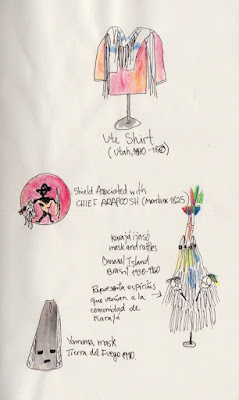 Ute Shirt
(Utah, 1870-1880)
Shield Asociated with
CHIEF ARAPOOSH (Montana 1825)
Karajá ijasó
mask and rattles
Bananal Island
Brasil 1930-1960
Representa espíritus
que venían a la
comunidad de
Karajá
Yamana mask
Tierra del Fuego 1910.